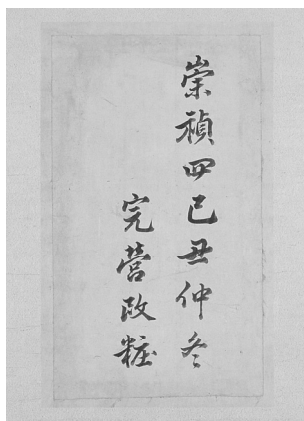 崇禎四己丑仲冬
完營改粧